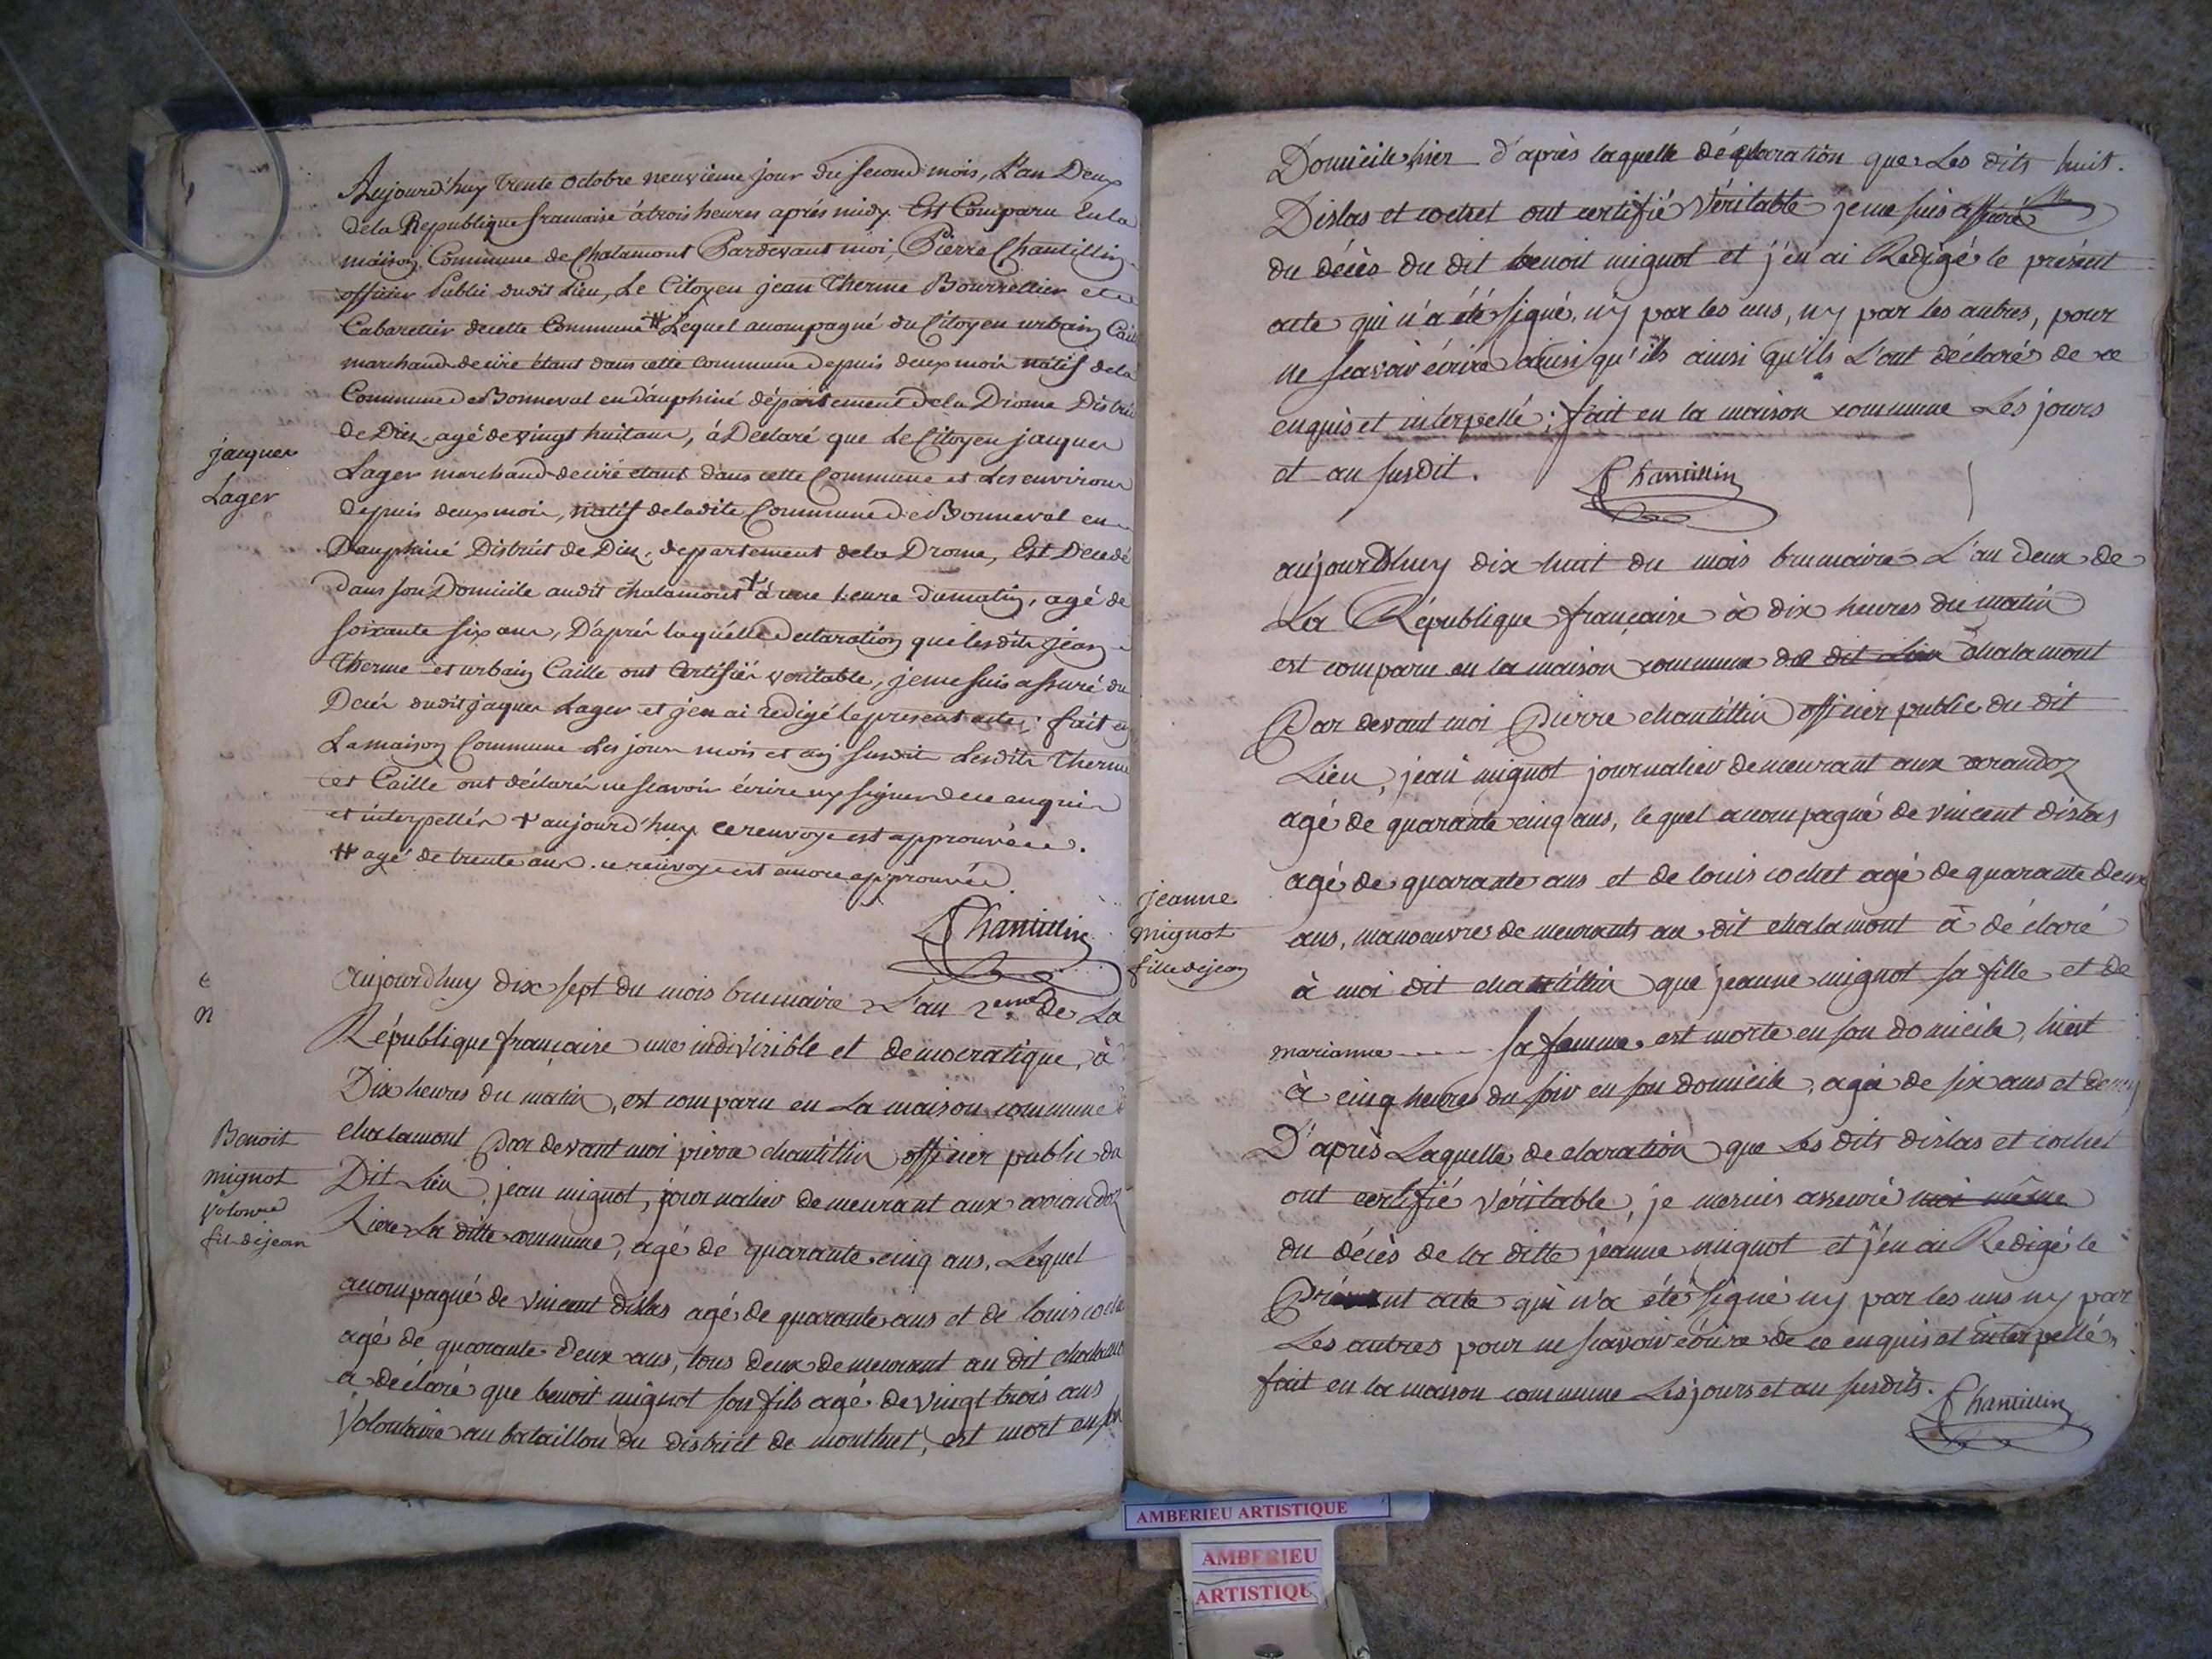 Aujourd'huy trente octobre neuvieme jour du second mois, L'an Deux
dela Republique francaise à trois heures aprés midy. Est Comparu En la
maison Commune de Chalamont Pardevant moi, Pierre Chantillin
officier Public dudit Lieu, Le Citoyen jean Therme Bourrelier et
Cabaretier decette Commune # Lequel acompagné du Citoyen urbain Caill
marchand de cire étant dans cette commune depuis deux mois natif dela
Commune de Bonneval en dauphiné département dela Drome District
de Diez. agé de vingt huit ans, á Declaré que le Citoyen jacques
jacques
Lager
Lager marchand de cire étant dans cette Commune et Les environs
depuis deux mois, natif deladite Commune de Bonneval en
Dauphiné District de Diez, departement dela Drome, Est Decedé
dans son Domicile audit chalamont + á une heure dumatin, agé de
soixante six ans, D'aprés laquelle declaration que lesdits jean
Therme et urbain Caille ont Certifiés veritable, jeme suis assuré du
Decés dudit jaques Lager et jen ai redigé le present acte; fait en
La maison Commune Les jour mois et an susdit Lesdits Therme
et Caille ont déclarés ne scavoir écrire ny signer de ce enquis
et interpellés + aujourd'huy ce renvoye est approuvée.
# agé de trente ans. ce renvoye est encore approuvée.
PChantillin
e
n
aujourdhuy dix sept du mois brumaire L'an 2.eme de La
République francaise une indivisible et democratique, à
Dix heures du matin, est comparu en La maison commune
Benoit
mignot
volonre
fils dejean
chalamont Par devant moi pierre chantillin officier public du
Dit Lieu, jean mignot, journalier demeurant aux
La ditte commune, agé de quarante cinq ans, Lequel
acompagné de vincent dislas agé de quarante ans et de louis coche
agé de quarante deux ans, tous deux demeurant au dit chalamo
a déclaré que benoit mignot son fils agé de vingt trois ans
Volontaire au bataillon du district de montluel, est mort en son
Domicile hier d'après laquelle déclaration que Les dits
Dislas et cochet ont certifié Véritable je me suis assuré
du décès du dit benoit mignot et j'en ai Redigé le présent
acte qui n'a été signé, ny par les uns, ny par les autres, pour
ne scavoir écrire ainsi qu'ils ainsi qu'ils L'ont déclarés de ce
enquis et interpellé; fait en la maison commune Les jours
et an susdit.
PChantillin
aujourdhuy dix huit du mois brumaire L'an deux de
La République française à dix heures du matin
est comparu en la maison commune du dit Lieu chalamont
Par devant moi Pierre chantillin officier public du dit
Lieu, jean mignot journalier demeurant aux
agé de quarante cinq ans, lequel acompagné de vincent dislas
jeanne
mignot
fille dejean
agé de quarante ans et de louis cochet agé de quarante deux
ans, manoeuvres demeurants au dit chalamont à déclaré
à moi dit chantillin que jeanne mignot sa fille et de
marianne ---- sa femme est morte en son domicile, hier
à cinq heures du soir en son domicile, agée de six ans et demy
D'après Laquelle declaration que Les dits dislas et cochet
ont certifié véritable, je me suis asseuré moi même
du décès de la ditte jeanne mignot et j'en ai Redigé le
Présent acte qui n'a été signé ny par les uns ny par
Les autres pour ne scavoir écrire de ce enquis et interpellé,
fait en la maison commune Les jours et an susdits.
PChantillin
AMBERIEU ARTISTIQUE
AMBERIEU
ARTISTIQU